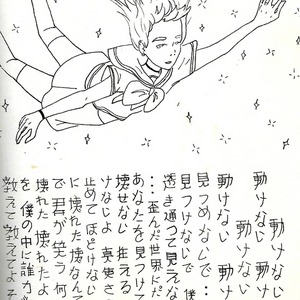 動けない
動けない
動けない
動けない
見つめないで
見つけないで 僕
透き通って見えな
…歪んだ世界にだ
あなたを見つけて
壊せない 狂える
けないよ 真実さ
止めて ほどけない
に壊れた
で君が笑う 何
壊れた 壊れたよ
を 僕の中に誰か
教えて 教えてよ そ